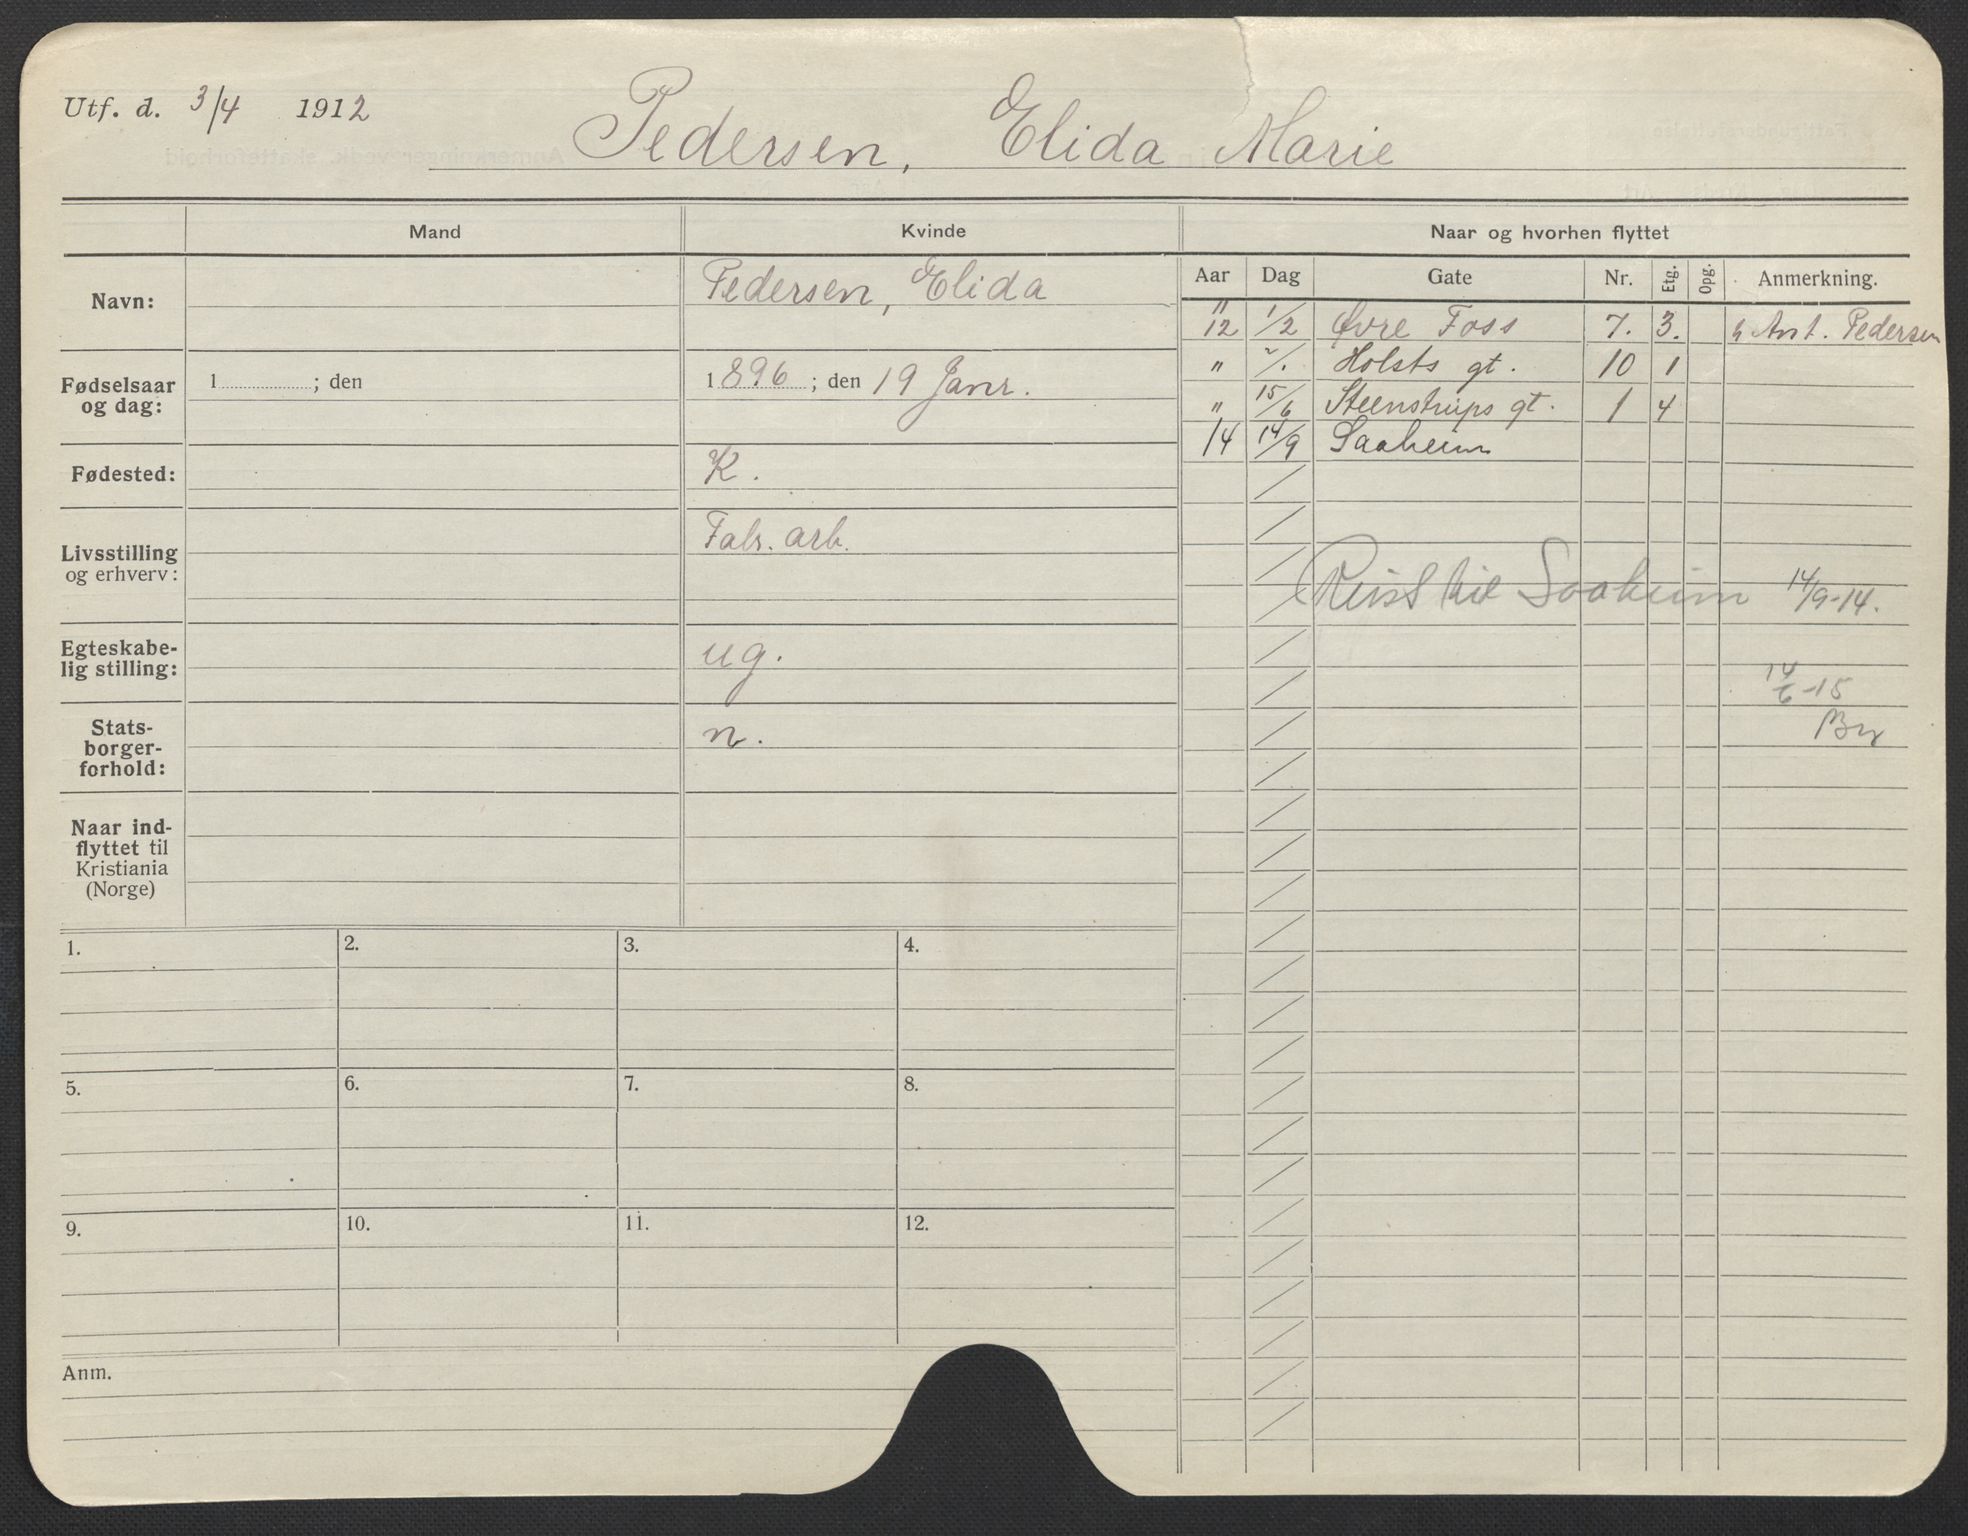 Utf. d. 3/4 1912
Pedersen, Elida Marie
Mand
Kvinde
Naar og hvorhen flyttet
Navn:
Pedersen, Elida
Fødselsaar
og dag:
1 ; den
1896 ; den 19 Janr.
Fødested:
K.
Livsstilling
og erhverv:
Fabr. arb.
Egteskabe-
lig stilling:
ug.
Stats-
borger-
forhold:
n.
Naar ind-
flyttet til
Kristiania
(Norge)
Aar Dag Gate Nr. Etg. Opg. Anmerkning.
" 12 1/2 Øvre Foss 7. 3. h Ant. Pedersen
" Holsts gt. 10 1
" 15/6 Steenstrups gt. 1 4
14 14/9 Saaheim
Reist til Saaheim 14/9-14.
14/6-15
1. 2. 3. 4.
5. 6. 7. 8.
9. 10. 11. 12.
Anm.